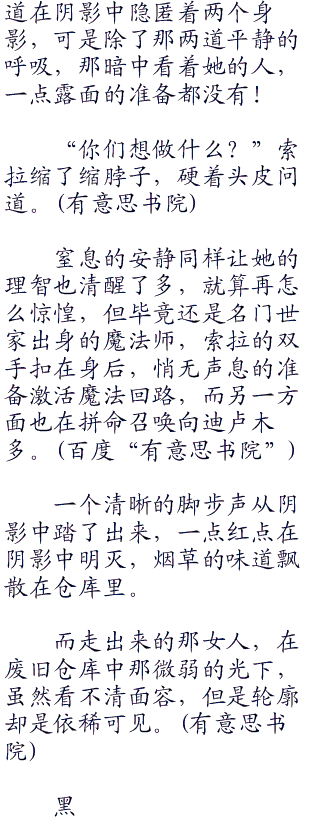 道在阴影中隐匿着两个身
影，可是除了那两道平静的
呼吸，那暗中看着她的人，
一点露面的准备都没有！
“你们想做什么？”索
拉缩了缩脖子，硬着头皮问
道。(有意思书院)
窒息的安静同样让她的
理智也清醒了多，就算再怎
么惊惶，但毕竟还是名门世
家出身的魔法师，索拉的双
手扣在身后，悄无声息的准
备激活魔法回路，而另一方
面也在拼命召唤向迪卢木
多。(百度“有意思书院”)
一个清晰的脚步声从阴
影中踏了出来，一点红点在
阴影中明灭，烟草的味道飘
散在仓库里。
而走出来的那女人，在
废旧仓库中那微弱的光下，
虽然看不清面容，但是轮廓
却是依稀可见。(有意思书
院)
黑